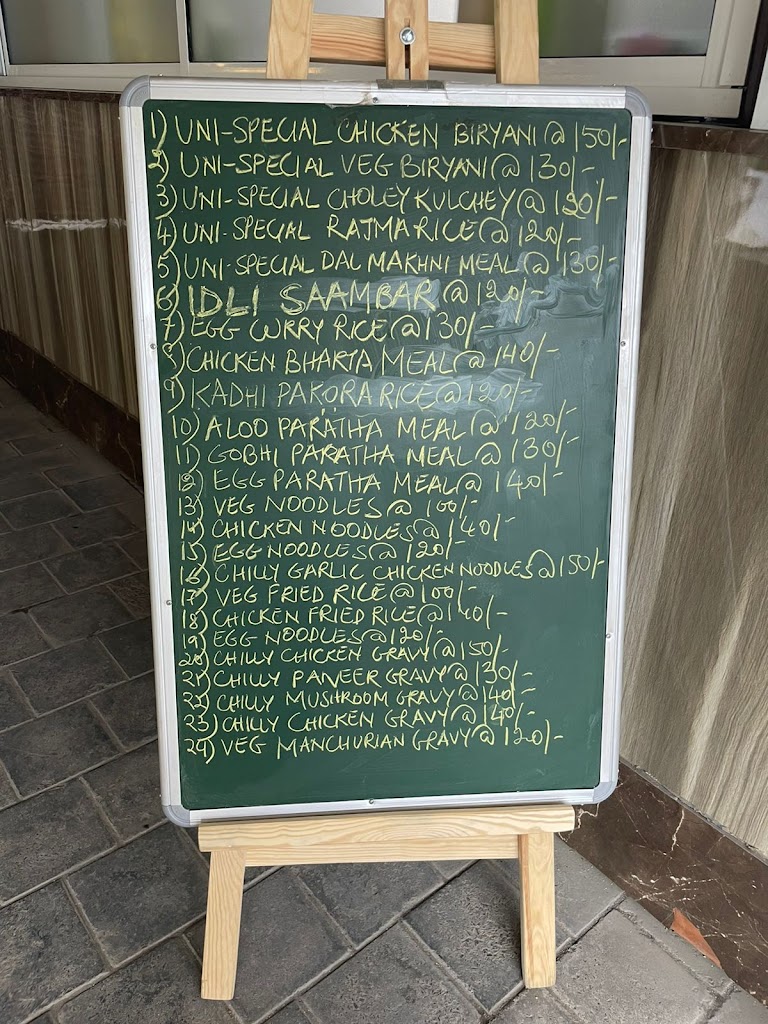 1) UNI-SPECIAL CHICKEN BIRYANI @ 150/-
2) UNI-SPECIAL VEG BIRYANI @ 130/-
3) UNI-SPECIAL CHOLEY KULCHEY @ 120/-
4) UNI-SPECIAL RAJMA RICE @ 120/-
5) UNI-SPECIAL DAL MAKHNI MEAL @ 130/-
6) IDLI SAAMBAR @ 120/-
7) EGG CURRY RICE @ 130/-
8) CHICKEN BHARTA MEAL @ 140/-
9) KADHI PAKORA RICE @ 120/-
10) ALOO PARATHA MEAL @ 120/-
11) GOBHI PARATHA MEAL @ 130/-
12) EGG PARATHA MEAL @ 140/-
13) VEG NOODLES @ 100/-
14) CHICKEN NOODLES @ 140/-
15) EGG NOODLES @ 120/-
16) CHILLY GARLIC CHICKEN NOODLES @ 150/-
17) VEG FRIED RICE @ 100/-
18) CHICKEN FRIED RICE @ 140/-
19) EGG NOODLES @ 120/-
20) CHILLY CHICKEN GRAVY @ 150/-
21) CHILLY PANEER GRAVY @ 130/-
22) CHILLY MUSHROOM GRAVY @ 140/-
23) CHILLY CHICKEN GRAVY @ 140/-
24) VEG MANCHURIAN GRAVY @ 120/-